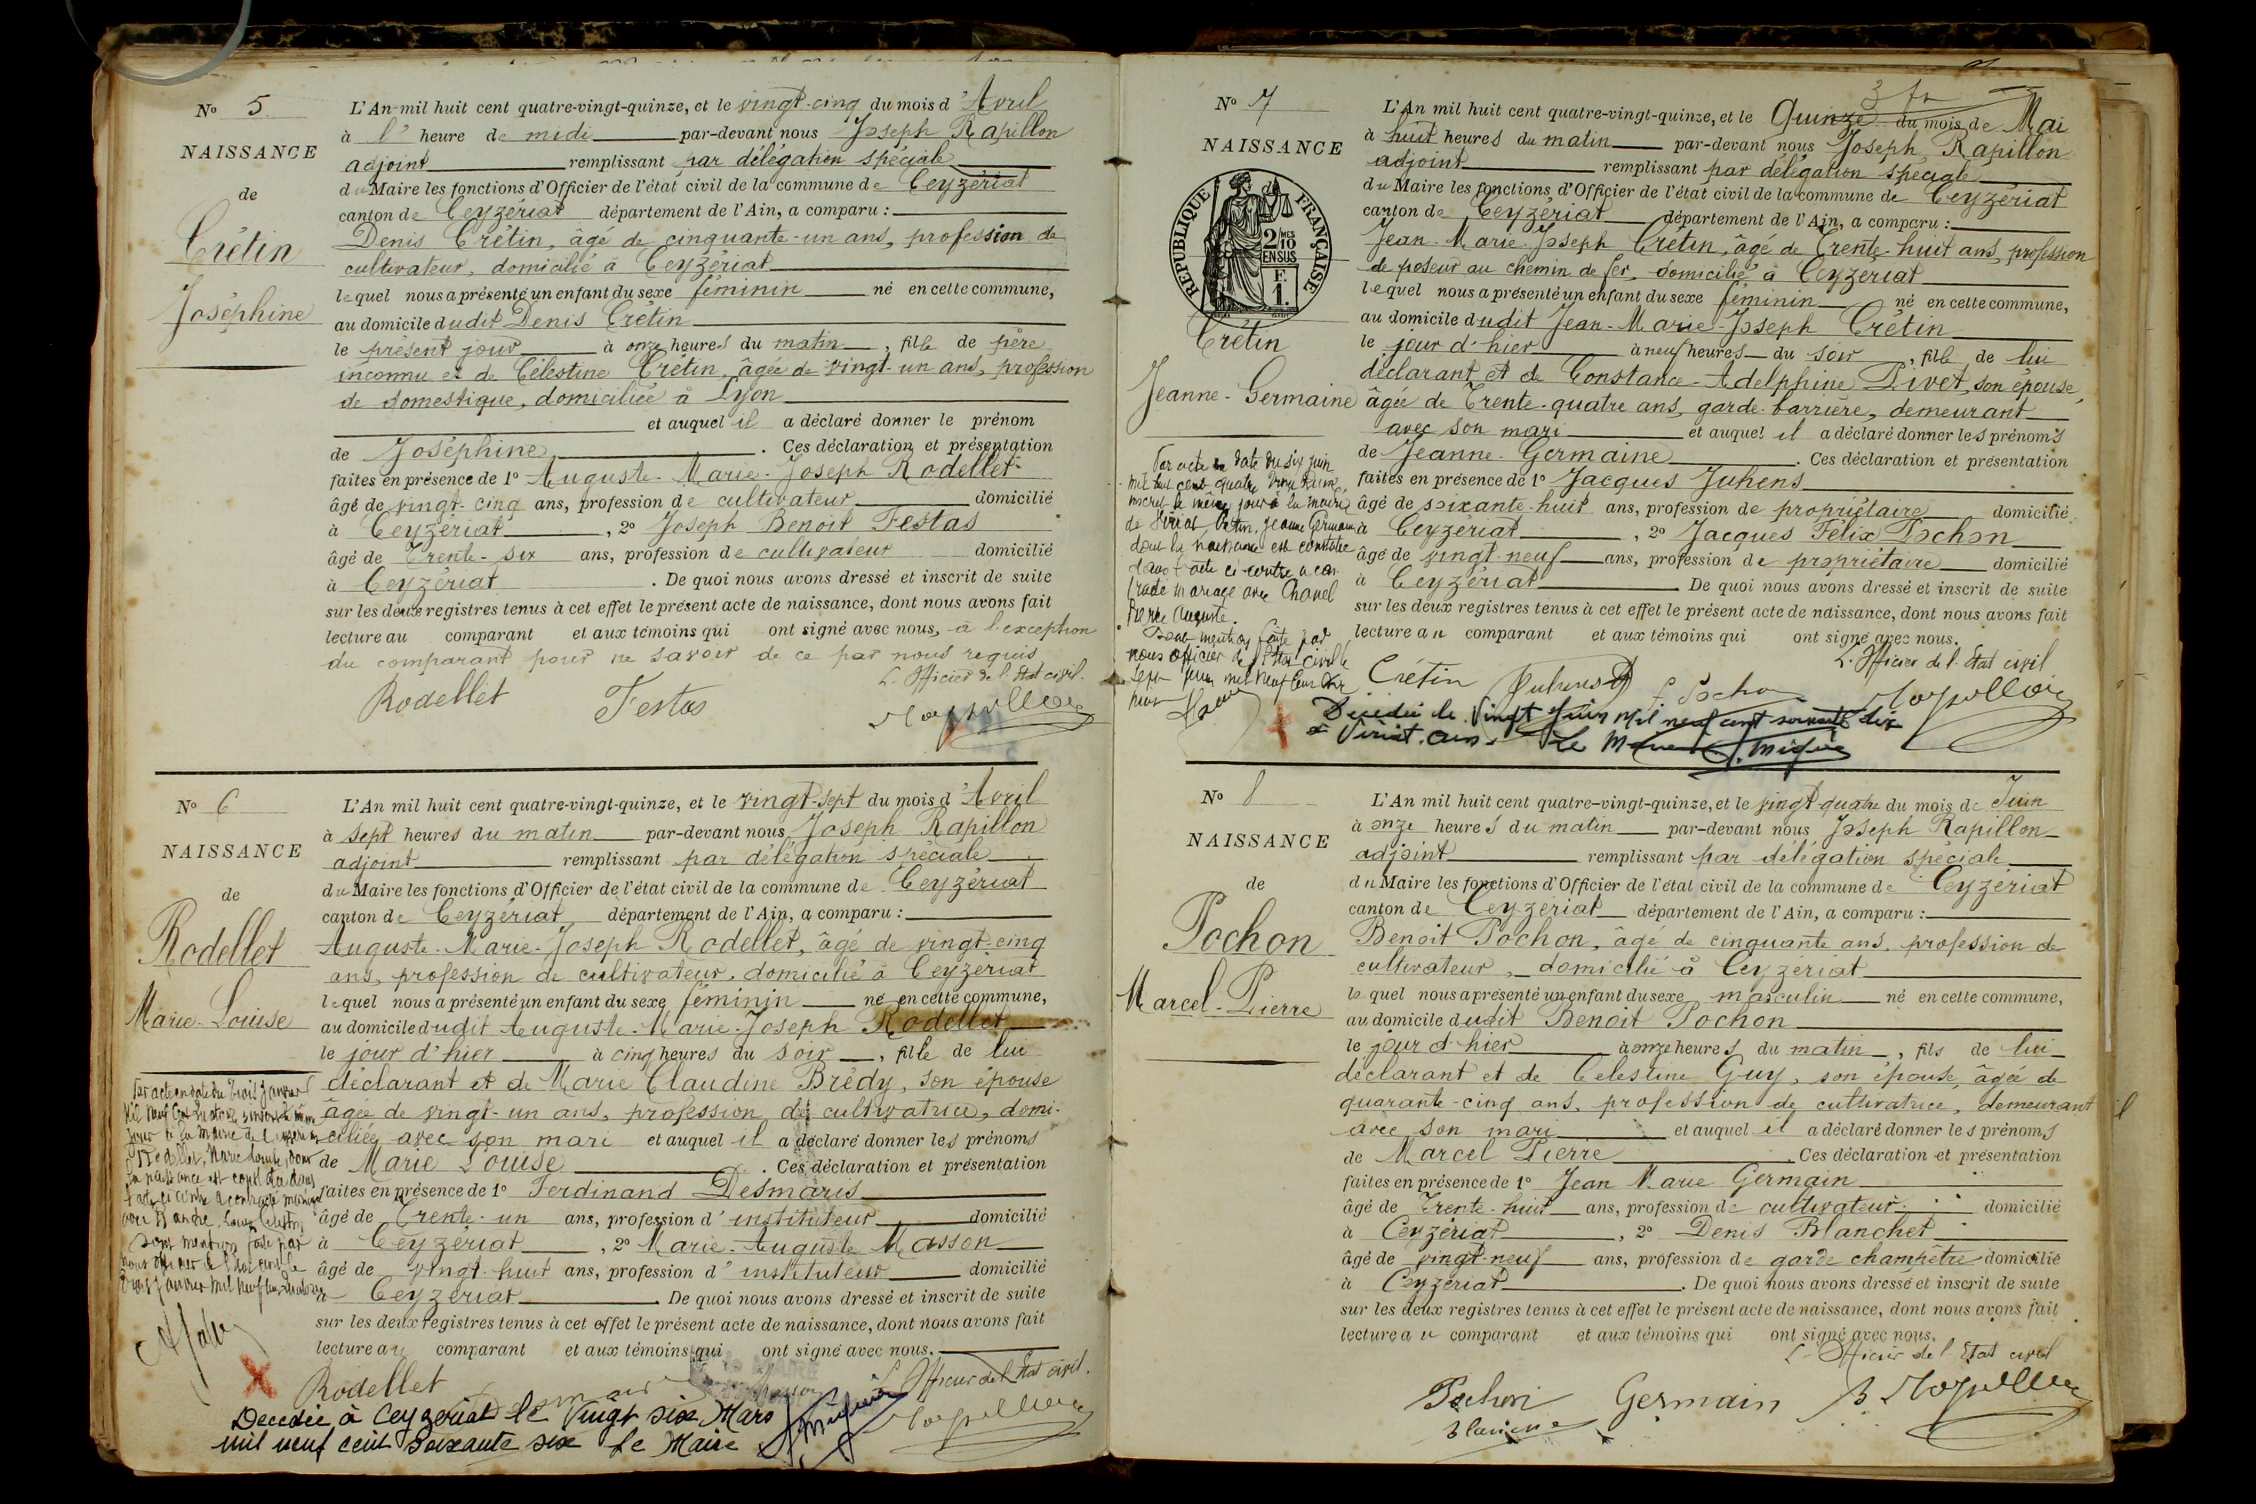 N° 5
NAISSANCE
de
Crétin
Joséphine
L'An mil huit cent quatre-vingt-quinze, et le vingt-cinq du mois d'Avril
à l'heure de midi par-devant nous Joseph Rapillon
adjoint remplissant par délégation spéciale
du Maire les fonctions d'Officier de l'état civil de la commune de Ceyzériat
canton de Ceyzériat département de l'Ain, a comparu :
Denis Crétin, âgé de cinquante-un ans, profession de
cultivateur, domicilié à Ceyzériat
lequel nous a présenté un enfant du sexe féminin né en cette commune,
au domicile dudit Denis Crétin
le présent jour à onze heures du matin, fille de père
inconnu et de Célestine Crétin, âgée de vingt-un ans, profession
de domestique, domiciliée à Lyon
et auquel il a déclaré donner le prénom
de Joséphine. Ces déclaration et présentation
faites en présence de 1° Auguste-Marie-Joseph Rodellet
âgé de vingt-cinq ans, profession de cultivateur domicilié
à Ceyzériat, 2° Joseph Benoit Festas
âgé de Trente-six ans, profession de cultivateur domicilié
à Ceyzériat. De quoi nous avons dressé et inscrit de suite
sur les deux registres tenus à cet effet le présent acte de naissance, dont nous avons fait
lecture au comparant et aux témoins qui ont signé avec nous, à l'exception
du comparant pour ne savoir de ce par nous requis
L'Officier de l'Etat civil.
Rodellet Festas Rapillon
N° 6
NAISSANCE
de
Rodellet
Marie-Louise
L'An mil huit cent quatre-vingt-quinze, et le vingt-sept du mois d'Avril
à sept heures du matin par-devant nous Joseph Rapillon
adjoint remplissant par délégation spéciale
du Maire les fonctions d'Officier de l'état civil de la commune de Ceyzériat
canton de Ceyzériat, département de l'Ain, a comparu :
Auguste-Marie-Joseph Rodellet, âgé de vingt-cinq
ans, profession de cultivateur, domicilié à Ceyzériat
lequel nous a présenté un enfant du sexe féminin né en cette commune,
au domicile dudit Auguste-Marie-Joseph Rodellet
le jour d'hier à cinq heures du soir, fille de lui
déclarant et de Marie Claudine Brédy, son épouse
âgée de vingt-un ans, profession de cultivatrice, domi-
ciliée avec son mari et auquel il a déclaré donner les prénoms
de Marie Louise. Ces déclaration et présentation
faites en présence de 1° Ferdinand Desmaris
âgé de Trente-un ans, profession d'instituteur domicilié
à Ceyzériat, 2° Marie-Auguste Masson
âgé de vingt-huit ans, profession d'instituteur domicilié
à Ceyzériat. De quoi nous avons dressé et inscrit de suite
sur les deux registres tenus à cet effet le présent acte de naissance, dont nous avons fait
lecture au comparant et aux témoins qui ont signé avec nous.
L'Officier de l'Etat civil.
Par acte en date du trois janvier
mil neuf cent
jour à la mairie de Ceyzériat
Rodellet, Marie Louise, dont
la naissance est constatée dans
l'acte ci contre a contracté mariage
avec
dont mention faite par
nous officier de l'état civil le
janvier mil neuf cent
Rodellet Masson Rapillon
Décédée à Ceyzériat le vingt six Mars
mil neuf cent soixante six Le Maire
N° 7
NAISSANCE
RÉPUBLIQUE FRANÇAISE
2/MES 10
EN SUS
F.
1.
Crétin
Jeanne-Germaine
3 fr
L'An mil huit cent quatre-vingt-quinze, et le Quinze du mois de Mai
à huit heures du matin par-devant nous Joseph Rapillon
adjoint remplissant par délégation spéciale
du Maire les fonctions d'Officier de l'état civil de la commune de Ceyzériat
canton de Ceyzériat département de l'Ain, a comparu :
Jean-Marie-Joseph Crétin, âgé de Trente-huit ans, profession
de poseur au chemin de fer, domicilié à Ceyzériat
lequel nous a présenté un enfant du sexe féminin né en cette commune,
au domicile dudit Jean-Marie-Joseph Crétin
le jour d'hier à neuf heures du soir, fille de lui
déclarant et de Constance-Adelphine Pivet, son épouse,
âgée de Trente-quatre ans, garde-barrière, demeurant
avec son mari et auquel il a déclaré donner les prénoms
de Jeanne-Germaine. Ces déclaration et présentation
faites en présence de 1° Jacques Juhens
âgé de soixante-huit ans, profession de propriétaire domicilié
à Ceyzériat, 2° Jacques Félix Pochon
âgé de vingt-neuf ans, profession de propriétaire domicilié
à Ceyzériat De quoi nous avons dressé et inscrit de suite
sur les deux registres tenus à cet effet le présent acte de naissance, dont nous avons fait
lecture au comparant et aux témoins qui ont signé avec nous.
L'Officier de l'Etat civil
Par acte en date du six juin
mil
inscrit le même jour à la mairie
de Viriat Crétin, Jeanne Germaine
dont la naissance est constatée
dans l'acte ci-contre a con-
tracté mariage avec Chanel
Pierre Auguste.
Dont mention faite par
nous officier de l'état civil le
sept juin mil neuf cent
Crétin Juhens F Pochon Rapillon
Décédée le vingt Juin mil neuf cent soixante dix
à Viriat. Ain. Le Maire
N° 8
NAISSANCE
de
Pochon
Marcel-Pierre
L'An mil huit cent quatre-vingt-quinze, et le vingt-quatre du mois de Juin
à onze heures du matin par-devant nous Joseph Rapillon
adjoint remplissant par délégation spéciale
du Maire les fonctions d'Officier de l'état civil de la commune de Ceyzériat
canton de Ceyzériat département de l'Ain, a comparu :
Benoit Pochon, âgé de cinquante ans, profession de
cultivateur, domicilié à Ceyzériat
lequel nous a présenté un enfant du sexe masculin né en cette commune,
au domicile dudit Benoit Pochon
le jour d'hier à onze heures du matin, fils de lui
déclarant et de Célestine Guy, son épouse, âgée de
quarante-cinq ans, profession de cultivatrice, demeurant
avec son mari et auquel il a déclaré donner les prénoms
de Marcel Pierre. Ces déclaration et présentation
faites en présence de 1° Jean Marie Germain
âgé de Trente-huit ans, profession de cultivateur domicilié
à Ceyzériat, 2° Denis Blanchet
âgé de vingt-neuf ans, profession de garde champêtre domicilié
à Ceyzériat. De quoi nous avons dressé et inscrit de suite
sur les deux registres tenus à cet effet le présent acte de naissance, dont nous avons fait
lecture au comparant et aux témoins qui ont signé avec nous.
L'Officier de l'Etat civil
Pochon Germain Rapillon